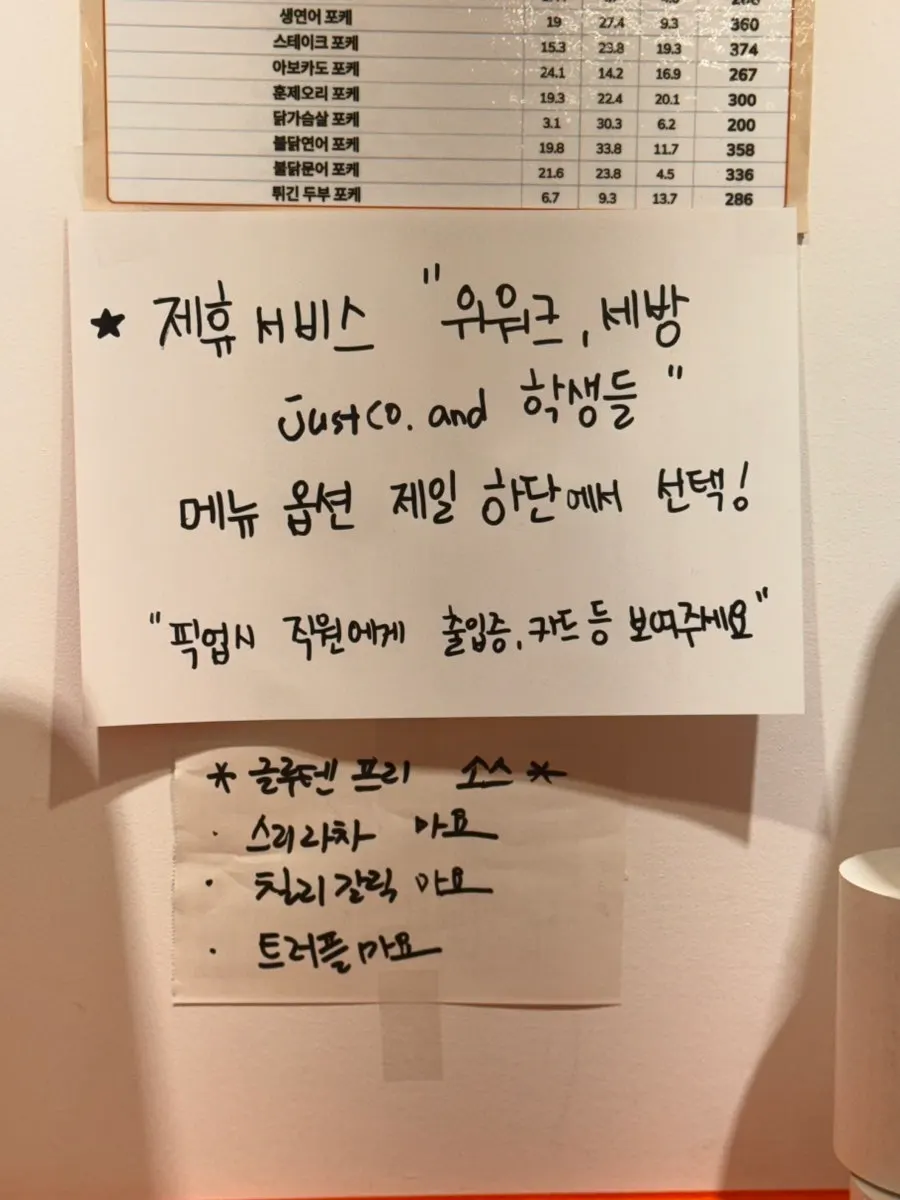 생연어 포케 19 27.4 9.3 360
스테이크 포케 15.3 23.8 19.3 374
아보카도 포케 24.1 14.2 16.9 267
훈제오리 포케 19.3 22.4 20.1 300
닭가슴살 포케 3.1 30.3 6.2 200
불닭연어 포케 19.8 33.8 11.7 358
불닭문어 포케 21.6 23.8 4.5 336
튀긴 두부 포케 6.7 9.3 13.7 286
★ 제휴 서비스 "위워크, 세방
JustCo. and 학생들"
메뉴 옵션 제일 하단에서 선택!
"픽업시 직원에게 출입증, 카드 등 보여주세요"
* 글루텐 프리 소스 *
· 스리라차 마요
· 칠리갈릭 마요
· 트러플마요